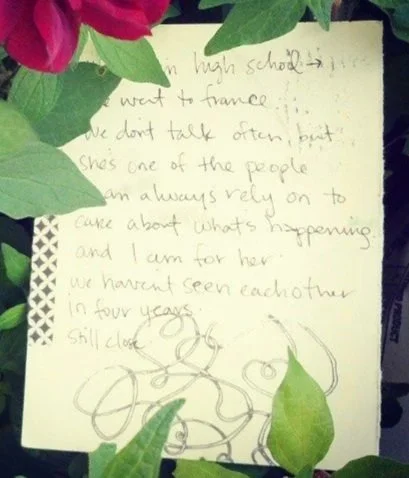 in high school →
went to france
we dont talk often, but
shes one of the people
an always rely on to
care about whats happening
and I am for her.
we havent seen eachother
in four years.
still close